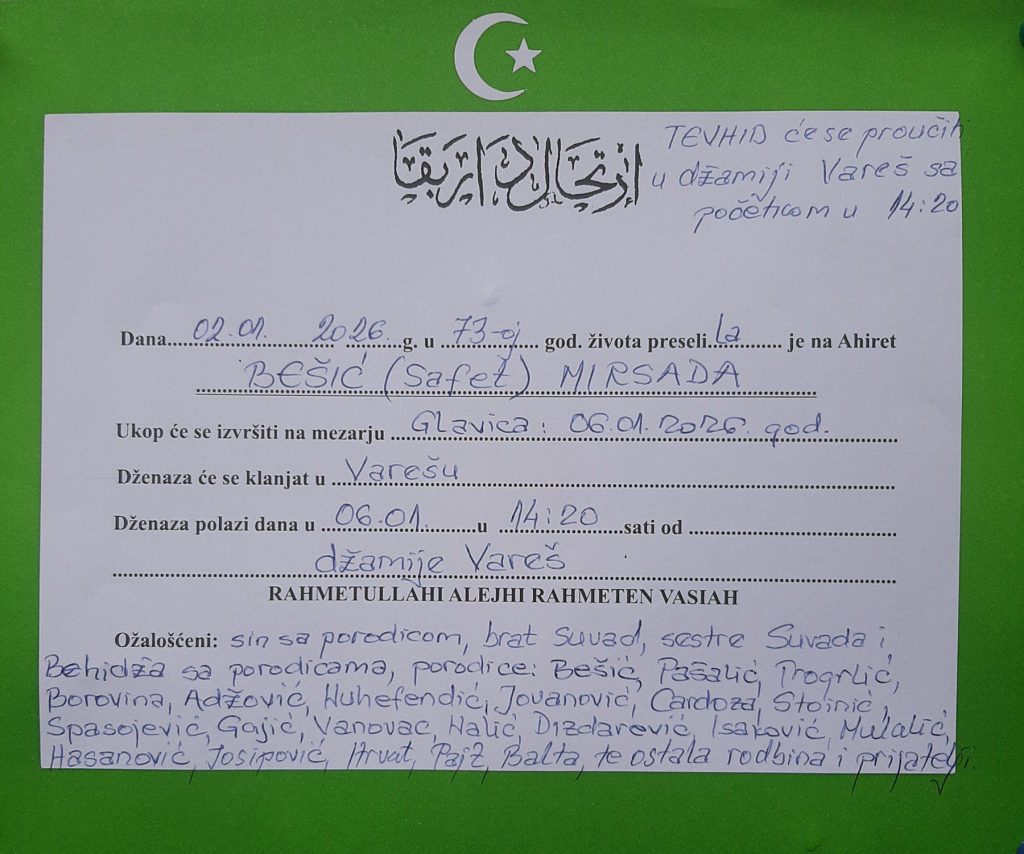 ارتحال دار بقا
TEVHID će se proučiti
u džamiji Vareš sa
početkom u 14:20
Dana....02.01. 2026....g. u ....73-oj.... god. života preseli..la........ je na Ahiret
BEŠIĆ (Safet) MIRSADA
Ukop će se izvršiti na mezarju ...Glavica: 06.01.2026. god.
Dženaza će se klanjat u ...Varešu
Dženaza polazi dana u ...06.01.........u ..14:20....sati od ...
džamije Vareš
RAHMETULLAHI ALEJHI RAHMETEN VASIAH
Ožalošćeni: sin sa porodicom, brat Suvad, sestre Suvada i
Behidža sa porodicama, porodice: Bešić, Pašalić, Progrlić,
Borovina, Adžović, Muhefendić, Jovanović, Cardoza, Stojnić,
Spasojević, Gajić, Vanovac, Halić, Dizdarević, Isaković, Mulalić,
Hasanović, Josipović, Hrvat, Pajz, Balta, te ostala rodbina i prijatelji.